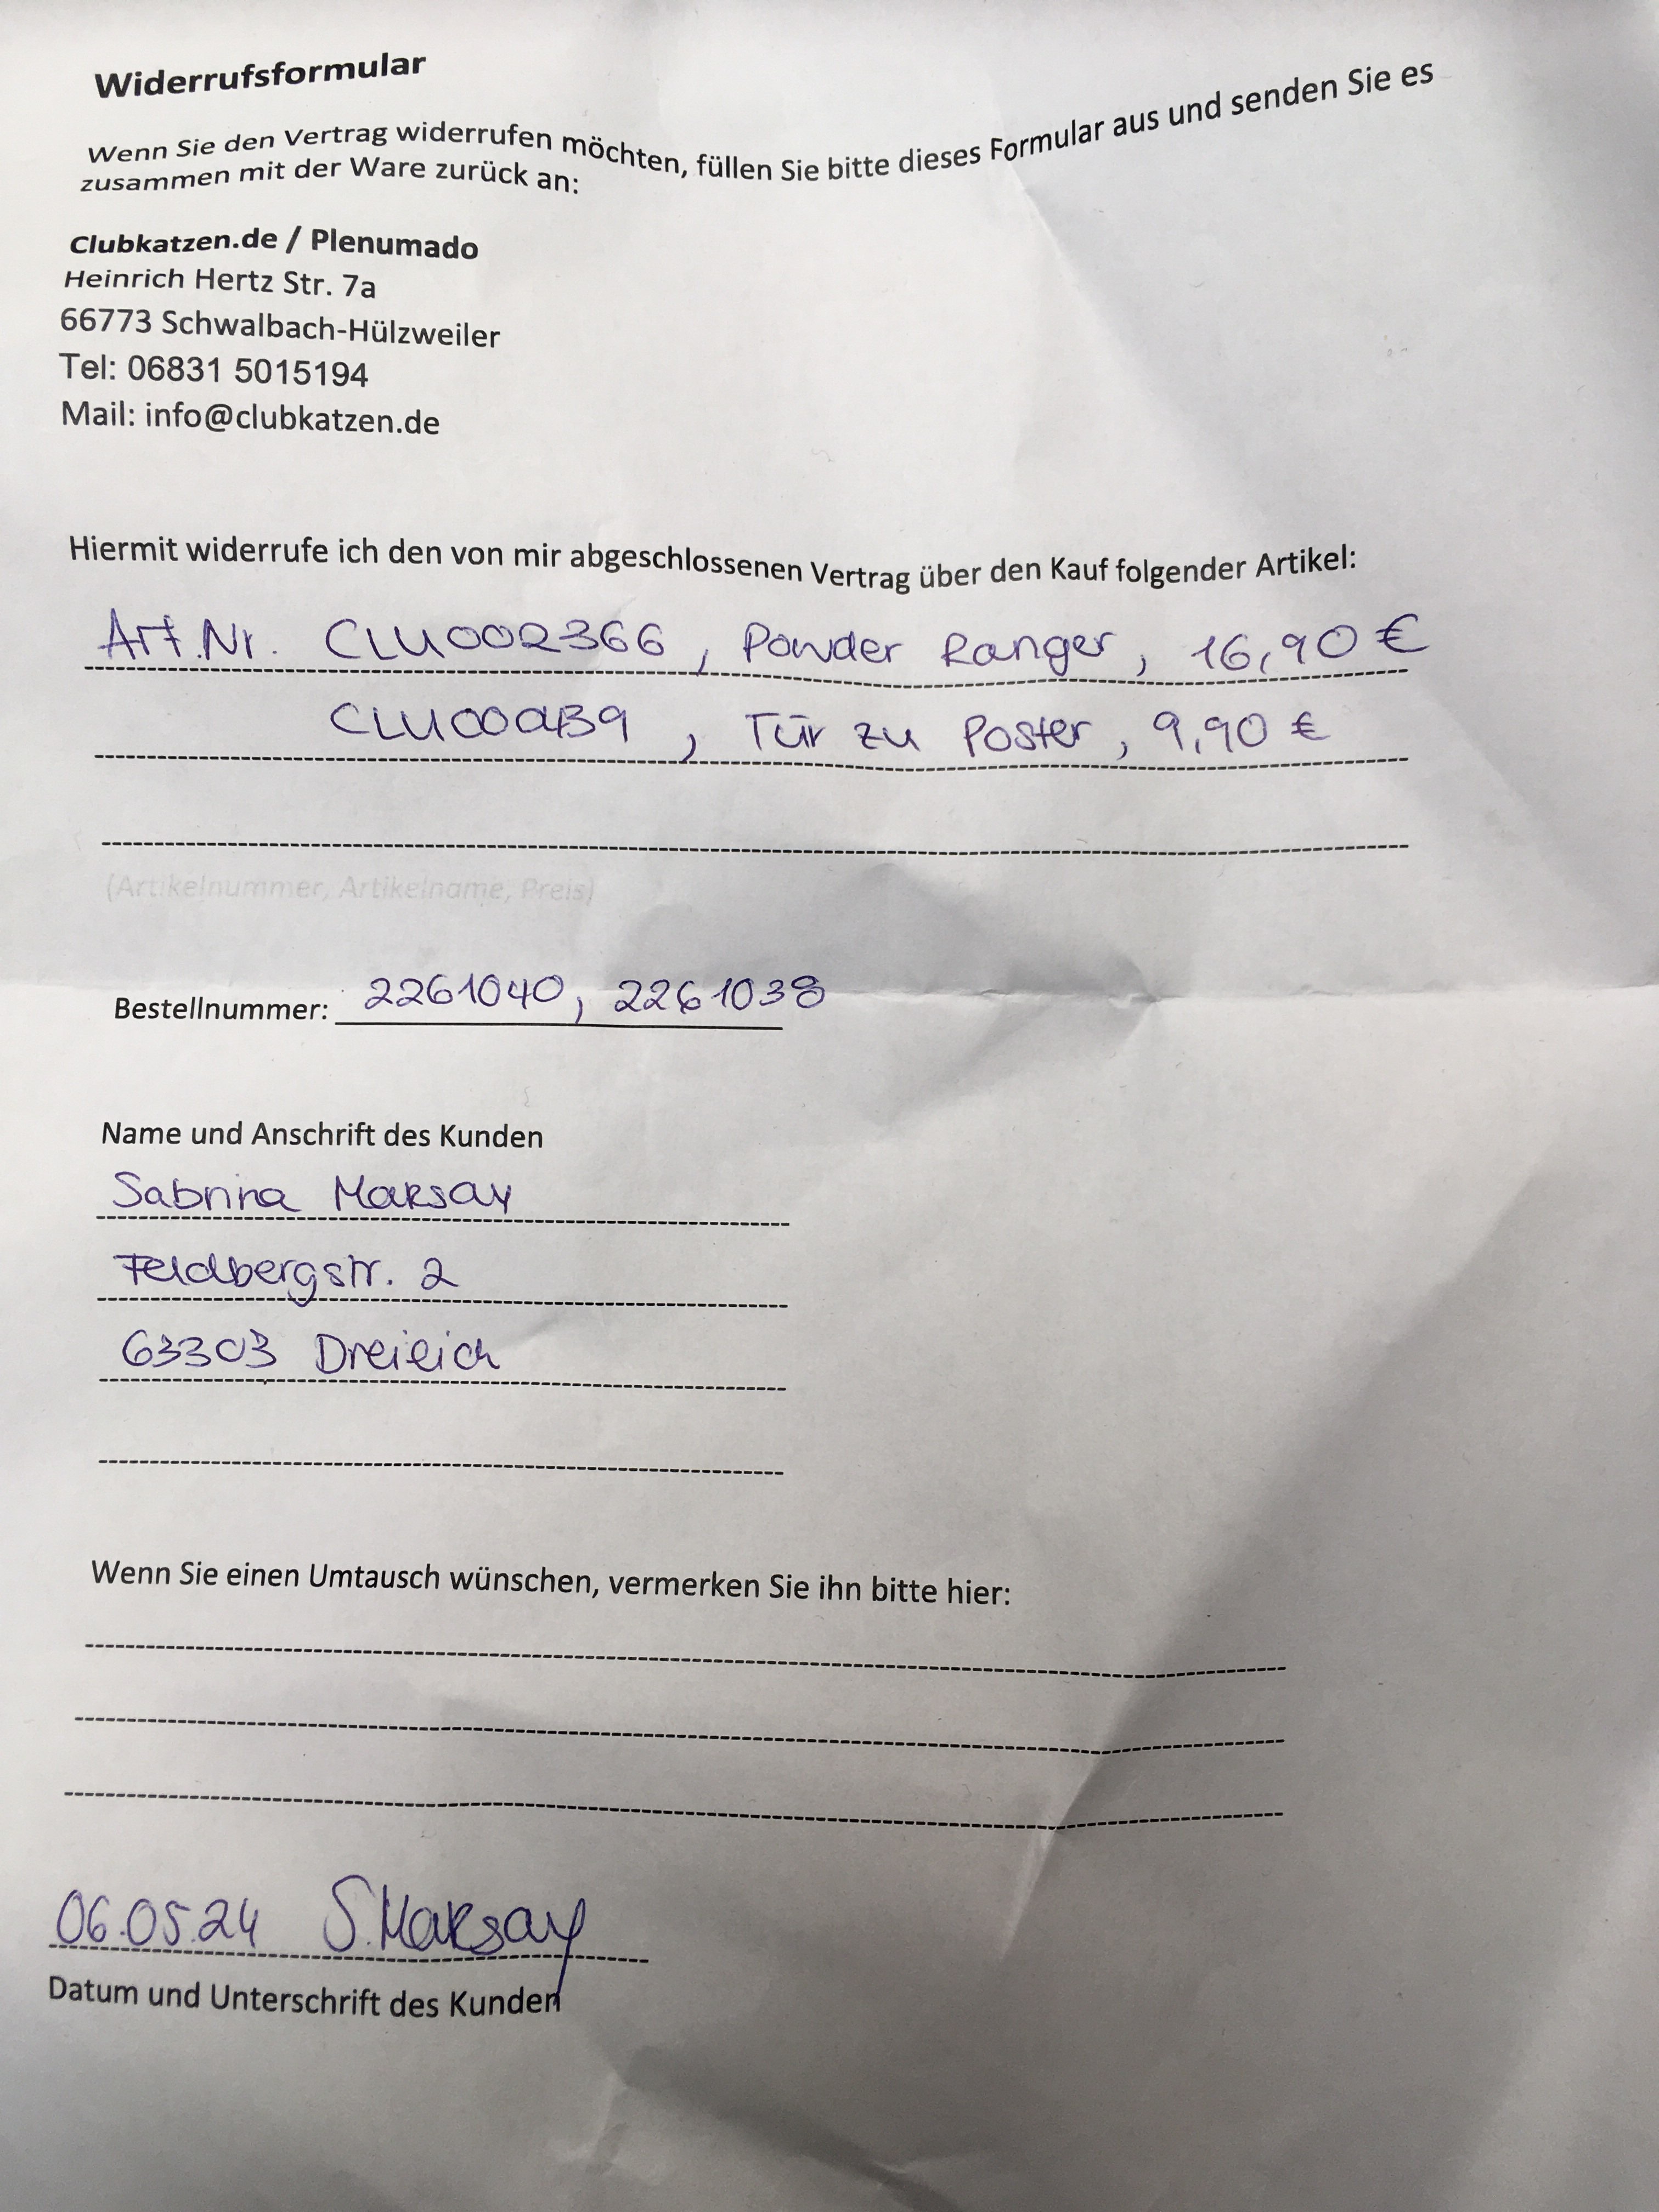 Widerrufsformular
Wenn Sie den Vertrag widerrufen möchten, füllen Sie bitte dieses Formular aus und senden Sie es
zusammen mit der Ware zurück an:
Clubkatzen.de / Plenumado
Heinrich Hertz Str. 7a
66773 Schwalbach-Hülzweiler
Tel: 06831 5015194
Mail: info@clubkatzen.de
Hiermit widerrufe ich den von mir abgeschlossenen Vertrag über den Kauf folgender Artikel:
Art.Nr. CLU002366, Powder Ranger, 16,90 €
, Tür zu Poster, 9,90 €
(Artikelnummer, Artikelname, Preis)
Bestellnummer: 2261040, 2261038
Name und Anschrift des Kunden
Sabrina Maksay
Feldbergstr. 2
63303 Dreieich
Wenn Sie einen Umtausch wünschen, vermerken Sie ihn bitte hier:
06.05.24 S.Maksay
Datum und Unterschrift des Kunden